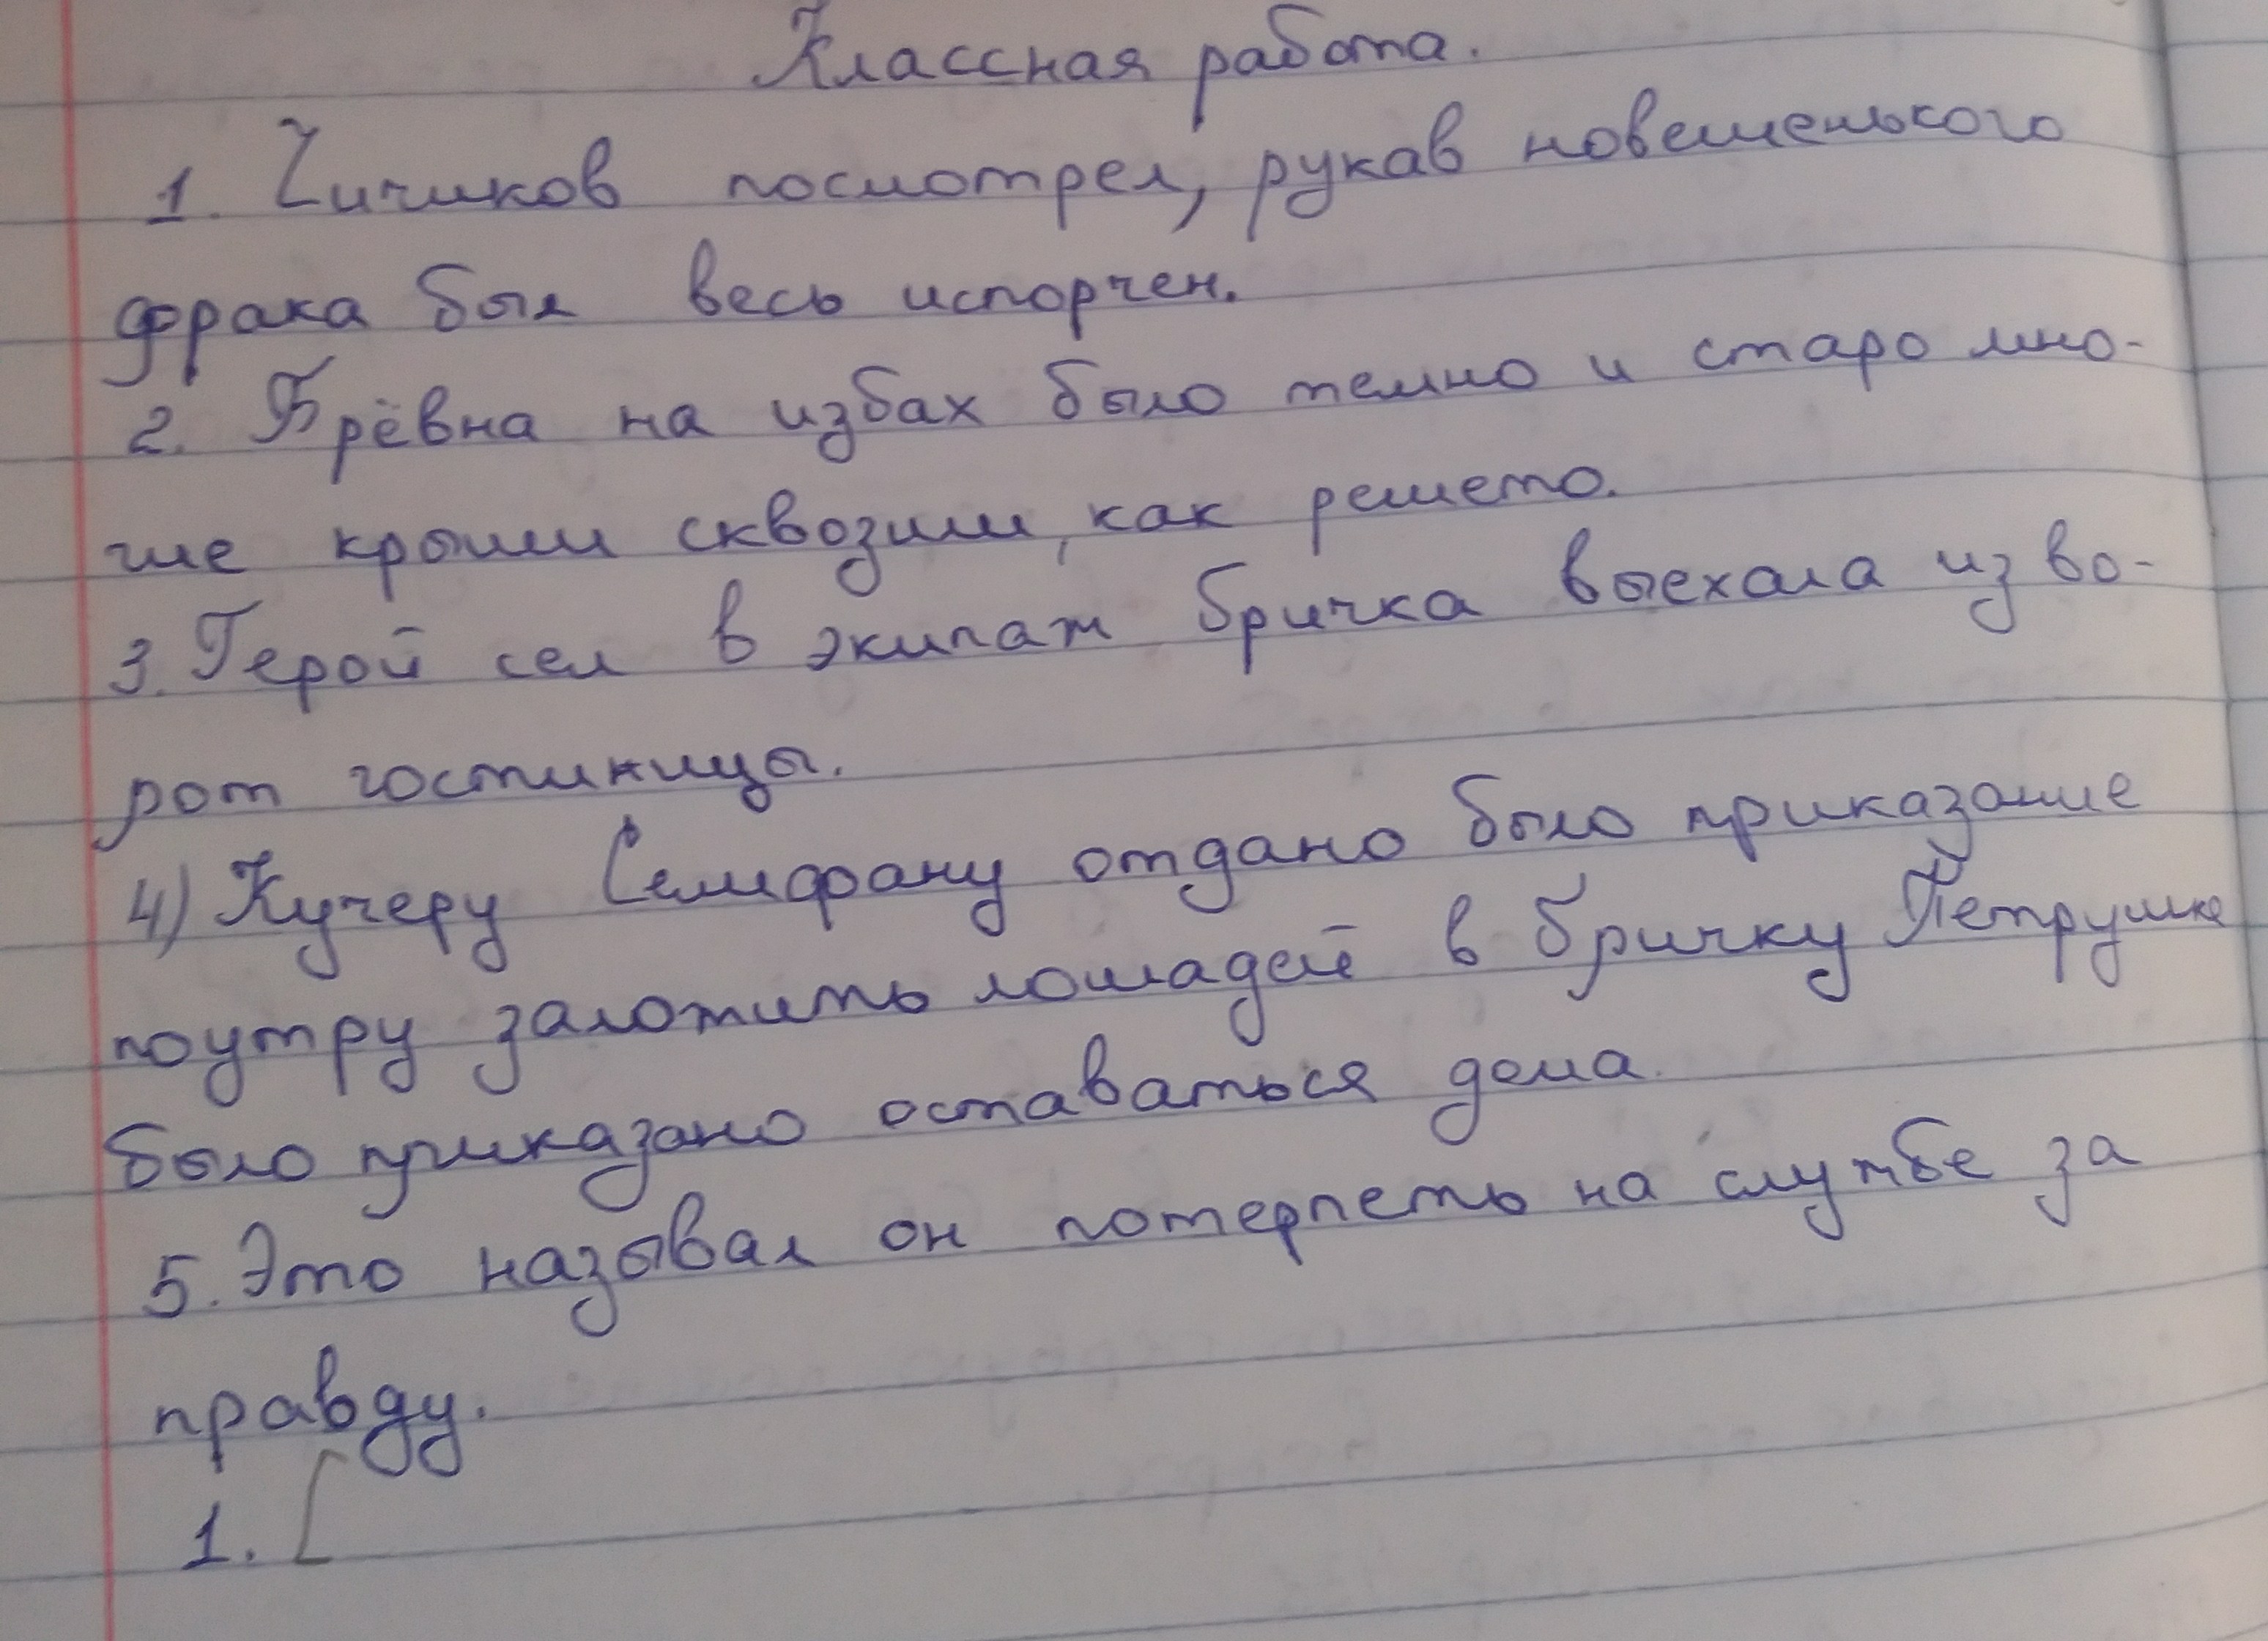 Классная работа.
1. Чичиков посмотрел, рукав новешенького
фрака был весь испорчен.
2. Брёвна на избах было темно и старо мно-
гие крыши сквозили, как решето.
3. Герой сел в экипаж бричка выехала из во-
рот гостиницы.
4) Кучеру Селифану отдано было приказание
поутру заложить лошадей в бричку Петрушке
было приказано оставаться дома.
5. Это называл он потерпеть на службе за
правду.
1. [